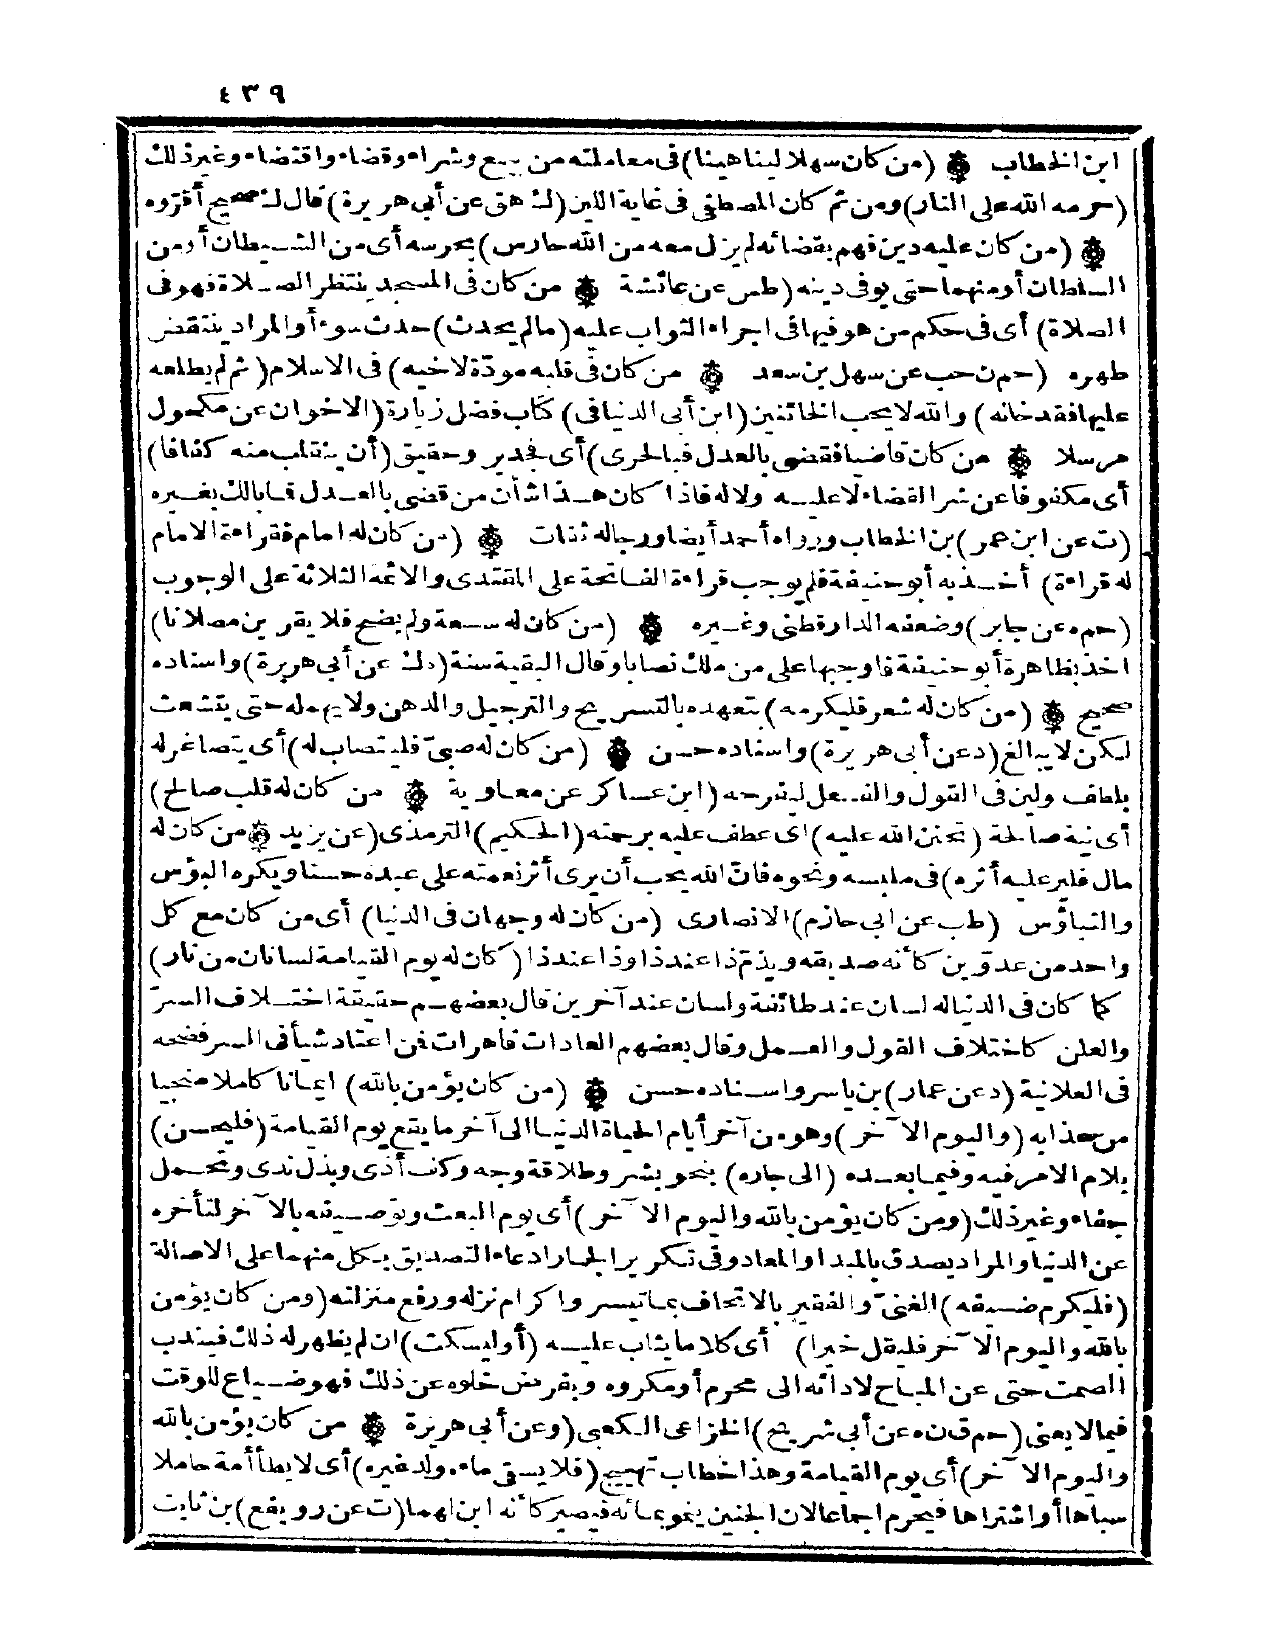 ٤٣٩
ابن الخطاب ۞ (من كان سهلا لينا هينا) فى معاملته من بيع وشراء وقضاء واقتضاء وغير ذلك
(حرمه الله على النار) ومن ثم كان المصطفى فى غاية اللين (ك هق عن أبى هريرة) قال ك صحيح أقروه
۞ (من كان عليه دين فهم بقضائه لم يزل معه من الله حارس) يحرسه أى من الشيطان أو من
السلطان أو منهما حتى يوفى دينه (طس عن عائشة ۞ من كان فى المسجد ينتظر الصلاة فهو فى
الصلاة) أى فى حكم من هو فيها فى اجراء الثواب عليه (مالم يحدث) حدث سوء أو المراد ينتقض
طهره (حم ن حب عن سهل بن سعد ۞ من كان فى قلبه مودّة لاخيه) فى الاسلام (ثم لم يطلعه
عليها فقد خانه) والله لا يحب الخائنين (ابن أبى الدنيا فى) كتاب فضل زيارة (الاخوان عن مكحول
مرسلا ۞ من كان قاضيا فقضى بالعدل فبالحرى) أى فجدير وحقيق (أن ينقلب منه كفافا)
أى مكفوفا عن شر القضاء لا عليه ولا له فاذا كان هذا شأن من قضى بالعدل فما بالك بغيره
(ت عن ابن عمر) بن الخطاب ورواه أحمد أيضا ورجاله ثقات ۞ (من كان له امام فقراءة الامام
له قراءة) أخذ به أبو حنيفة فلم يوجب قراءة الفاتحة على المقتدى والائمة الثلاثة على الوجوب
(حم ه عن جابر) وضعفه الدارقطنى وغيره ۞ (من كان له سعة ولم يضح فلا يقربن مصلانا)
اخذ بظاهره أبو حنيفة فاوجبها على من ملك نصابا وقال البقية سنة (ه ك عن أبى هريرة) واسناده
صحيح ۞ (من كان له شعر فليكرمه) بتعهده بالتسريح والترجيل والدهن ولا يهمله حتى يتشعث
ليكن لا يبالغ (د عن أبى هريرة) واسناده حسن ۞ (من كان له صبىّ فليتصاب له) أى يتصاغر له
بلطف ولين فى القول والفعل ليفرحه (ابن عساكر عن معاوية ۞ من كان له قلب صالح)
أى نية صالحة (تحنن الله عليه) اى عطف عليه برحمته (الحكيم) الترمذى (عن بريد ۞ من كان له
مال فلير عليه أثره) فى ملبسه ونحوه فانّ الله يحب أن يرى أثر نعمته على عبده حسنا ويكره البؤس
والتباؤس (طب عن ابى حازم) الانصارى (من كان له وجهان فى الدنيا) أى من كان مع كل
واحد من عدوّين كأنه صديقه ويذم ذا عند ذا وذا عند ذا (كان له يوم القيامة لسانان من نار)
كما كان فى الدنيا له لسان عند طائفة ولسان عند آخرين قال بعضهم حقيقة اختلاف السرّ
والعلن كاختلاف القول والعمل وقال بعضهم العادات قاهرات فمن اعتاد شيأ فى السر فضحه
فى العلانية (د عن عمار) بن ياسر واسناده حسن ۞ (من كان يؤمن بالله) ايمانا كاملا منجيا
من عذابه (واليوم الآخر) وهو من آخر أيام الحياة الدنيا الى آخر ما يقع يوم القيامة (فليحسن)
بلام الامر فيه وفيما بعده (الى جاره) بنحو بشر وطلاقة وجه وكف أذى وبذل ندى وتحمل
جفاء وغير ذلك (ومن كان يؤمن بالله واليوم الآخر) أى يوم البعث وتوصيفه بالآخر لتأخره
عن الدنيا والمراد يصدق بالمبدا والمعاد وفى تكرير الجار ادعاء التصديق بكل منهما على الاصالة
(فليكرم ضيفه) الغنىّ والفقير بالاتحاف بما تيسر واكرام نزله ورفع منزلته (ومن كان يؤمن
بالله واليوم الآخر فليقل خيرا) أى كلاما يثاب عليه (أوليسكت) ان لم يظهر له ذلك فيندب
الصمت حتى عن المباح لادائه الى محرم أو مكروه وبفرض خلوه عن ذلك فهو ضياع للوقت
فيما لا يعنى (حم ق ن ه عن أبى شريح) الخزاعى الكعبى (وعن أبى هريرة ۞ من كان يؤمن بالله
واليوم الآخر) أى يوم القيامة وهذا خطاب تهييج (فلا يسقى ماءه ولد غيره) أى لا يطأ أمة حاملا
سباها أو اشتراها فيحرم اجماعا لان الجنين ينمو بمائه فيصير كأنه ابن لهما (ت عن رويفع) بن ثابت